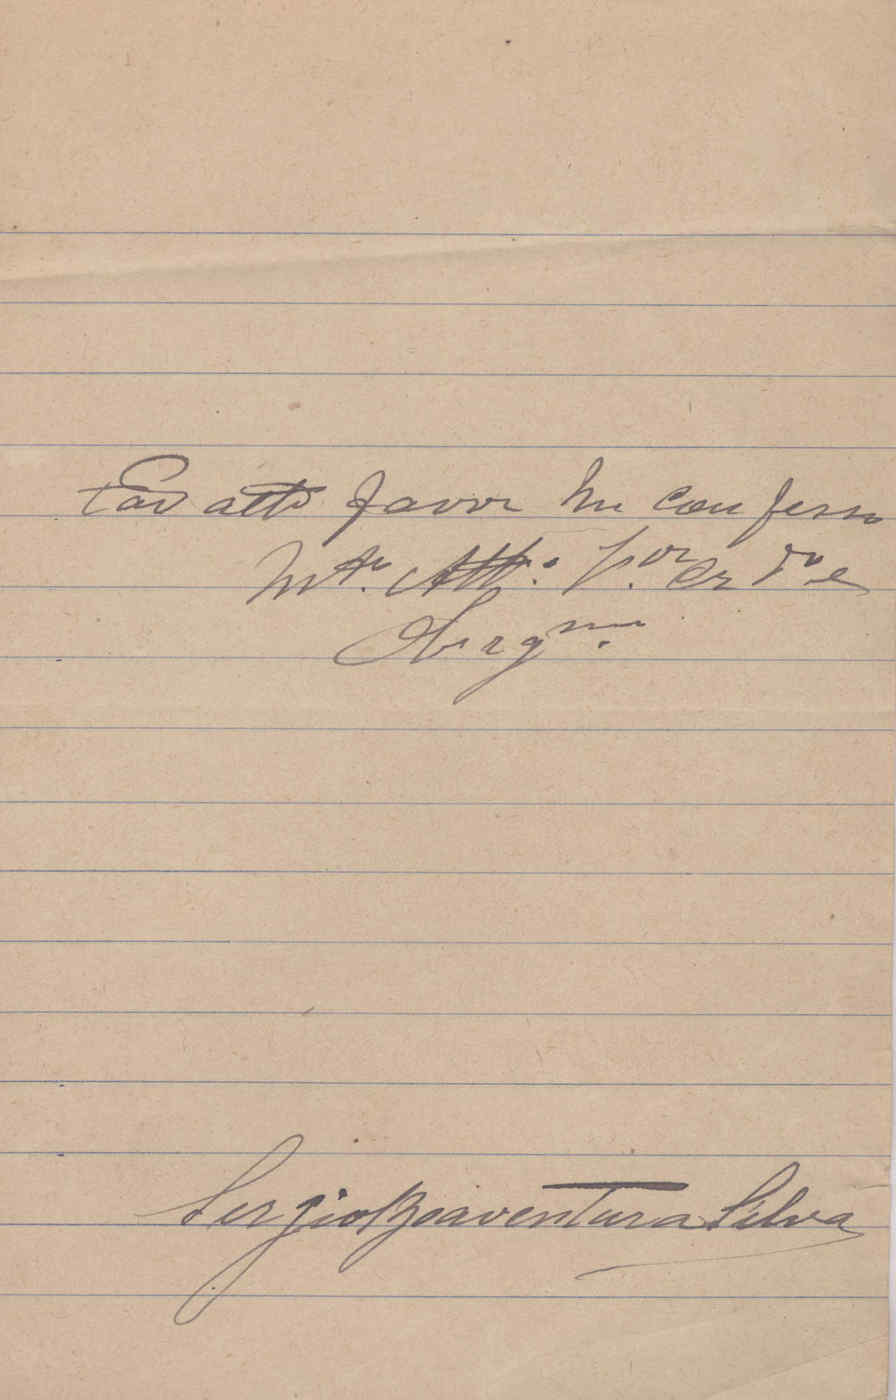 Tão alto favor me confesso
Mto. Atto. V.or Cr do e
Obrgmo.
Sergio Boaventura Silva